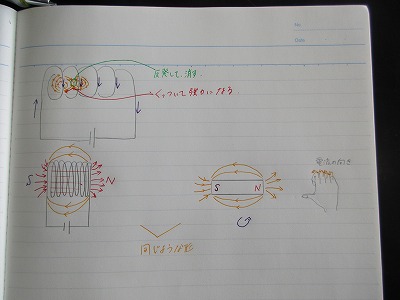 No.
Date
反発して、消す
くっついて強力になる
電流の向き
S
N
S
N
同じような形